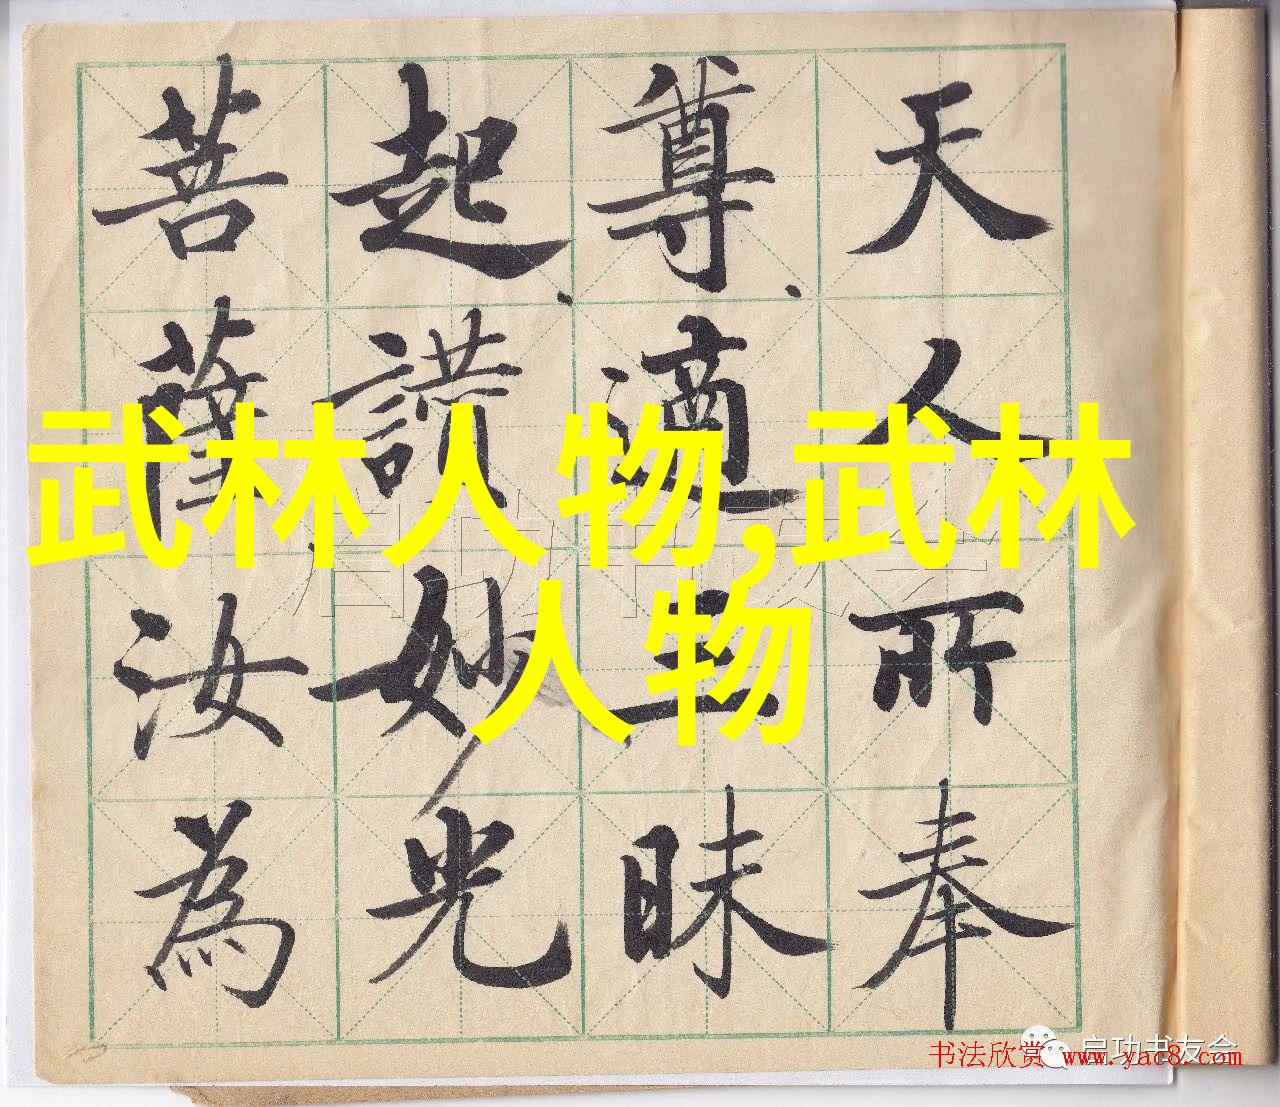 天人所奉
尊適三昧
起讚妙光
菩薩汝為
武林人物,武林
人物
启功书友会
启功书友会
书法欣赏 www.yac8.com